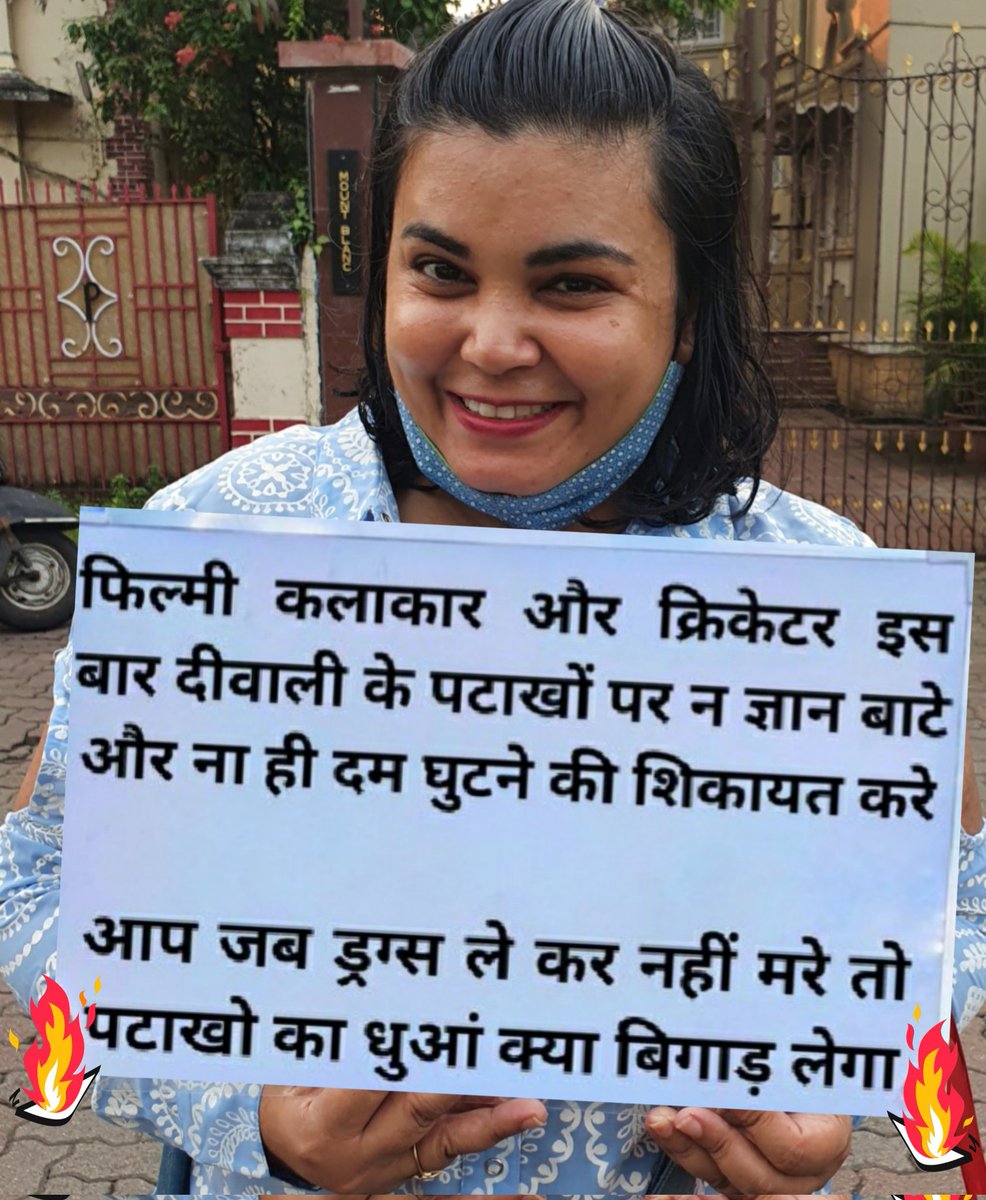 MOUNT BLANC
P
फिल्मी कलाकार और क्रिकेटर इस
बार दीवाली के पटाखों पर न ज्ञान बाटे
और ना ही दम घुटने की शिकायत करे
आप जब ड्रग्स ले कर नहीं मरे तो
पटाखो का धुआं क्या बिगाड़ लेगा